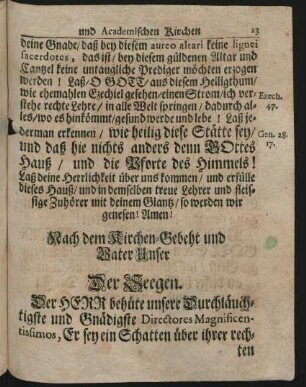 und Academischen Kirchen 23
deine Gnade/ daß bey diesem aureo altari keine lignei
sacerdotes, das ist/ bey diesem güldenen Altar und
Cantzel keine untaugliche Prediger möchten erzogen
werden! Laß/ O GOTT/ aus diesem Heiligthum/
wie ehemahlen Ezechiel gesehen/einen Strom/ich ver- Ezech.
stehe rechte Lehre/ in alle Welt springen/ dadurch al- 47.
les/wo es hinkömmt/gesund werde und lebe! Laß je-
derman erkennen/ wie heilig diese Stätte sey/ Gen. 28.
und daß hie nichts anders denn GOttes 17.
Hauß/ und die Pforte des Himmels!
Laß deine Herrlichkeit über uns kommen/ und erfülle
dieses Hauß/ und in demselben treue Lehrer und fleis-
sige Zuhörer mit deinem Glantz/ so werden wir
genesen! Amen!
Nach dem Kirchen-Gebeht und
Vater Unser
Der Seegen.
Der HERR behüte unsere Durchläuch-
tigste und Gnädigste Directores Magnificen-
tissimos, Er sey ein Schatten über ihrer rech-
ten